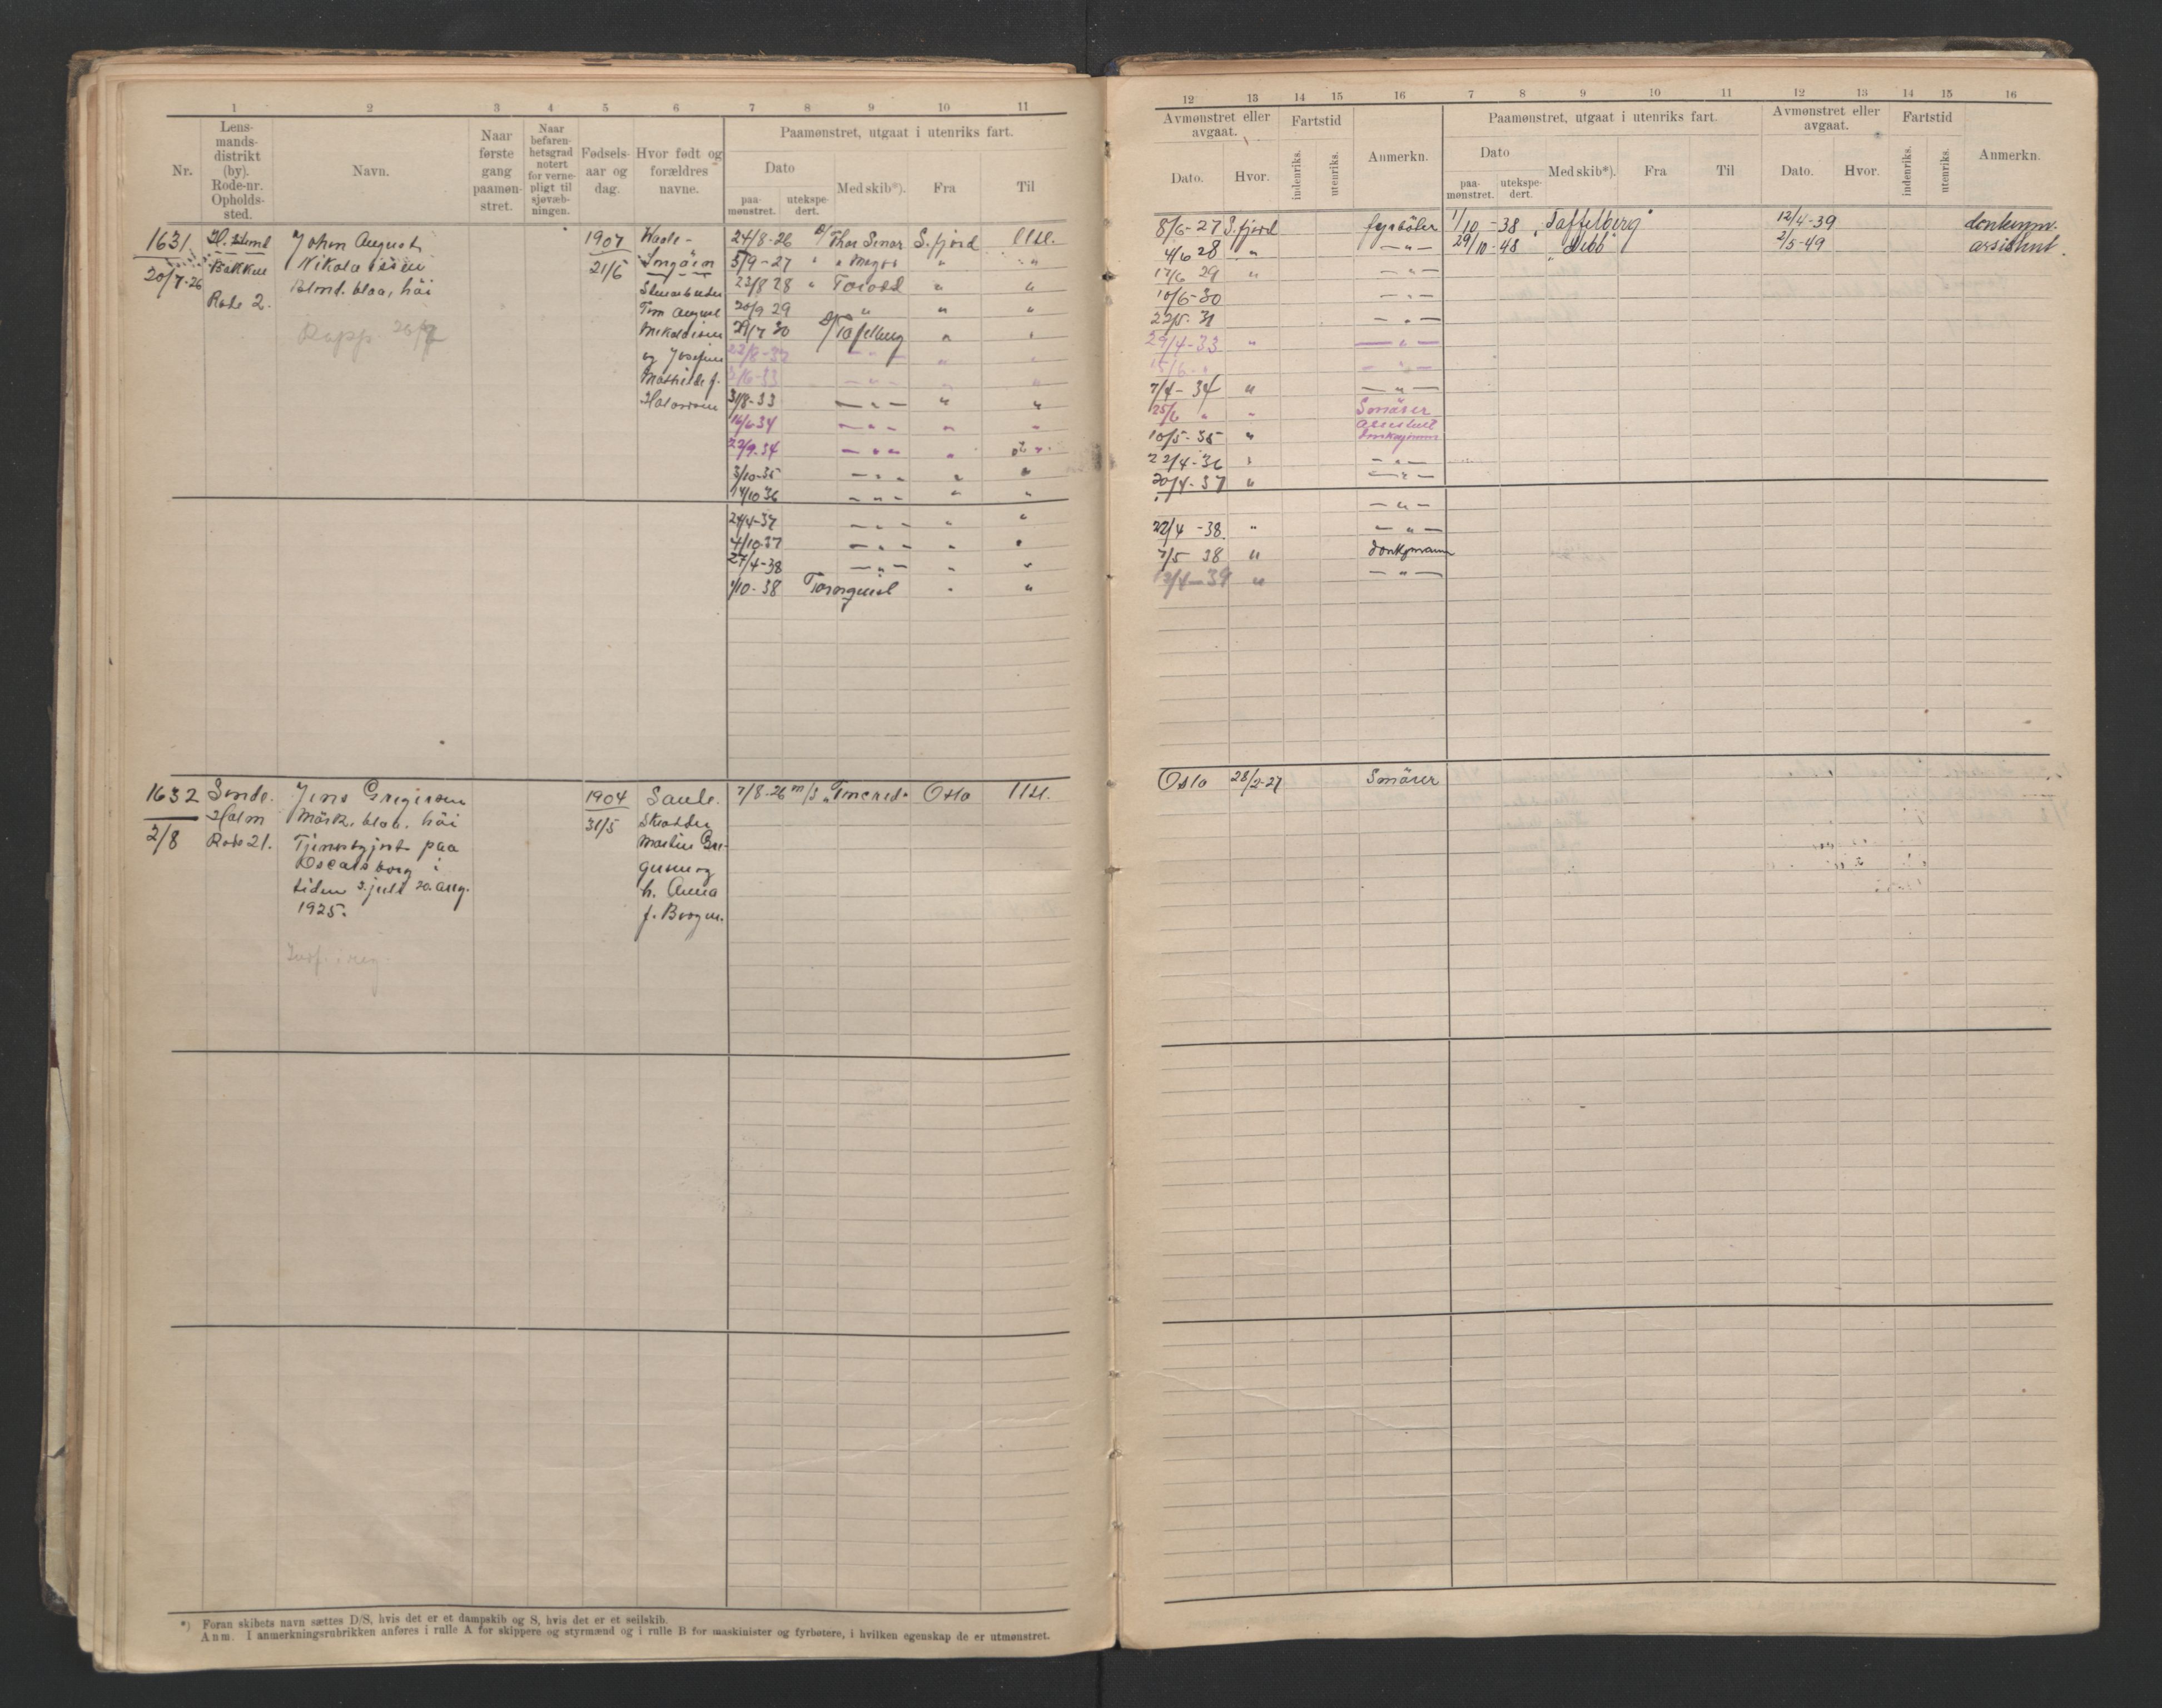 1 2 3 4 5 6 7 8 9 10 11
Nr.
Lens-
mands-
distrikt
(by).
Rode-nr.
Opholds-
sted.
Navn.
Naar
første
gang
paamøn-
stret.
Naar
befaren-
hetsgrad
notert
for verne-
pligt til
sjøvæb-
ningen.
Fødsels-
aar og
dag.
Hvor født og
forældres
navne.
Paamønstret, utgaat i utenriks fart.
Dato
paa-
mønstret.
utekspe-
dert.
Med skib*).
Fra
Til
1631
20/7-26
Bakken
Rode 2.
John August
Nikolaisen
Blond. blaa, høi
Rapp.
1907
21/5
og Josefine
Mathilde f.
Halvorsen
24/8-26 D/ Thor Einar S. fjord Utl.
5/9-27 " " "
22/8 28 " Torodd " "
20/9 29 " " "
29/7 30 "
22/8-32 — " — "
2/6-33 — " — "
31/8-33 — " — " "
16/6 34 — " — "
22/9-34 — " — "
3/10-35 — " — " "
14/10 36 — " — " "
24/4-37 — " — " "
4/10-37 — " — " "
27/4-38 — " — " "
1/10-38 Tornquist " "
1632
2/8
Sende.
Holm
Rode 21.
Jens Gregersen
Mörk. blaa. höi
Tjenestgjort paa
Oscarsborg i
tiden 3. juli 20. aug.
1925.
1904
31/5
Sande.
Skrædder
Martin Gre-
gersen og
h. Anna
f. Borgen.
7/8-26 m/s Oslo Utl.
*) Foran skibets navn sættes D/S, hvis det er et dampskib og S, hvis det er et seilskib.
Anm. I anmerkningsrubrikken anføres i rulle A for skippere og styrmænd og i rulle B for maskinister og fyrbøtere, i hvilken egenskap de er utmønstret.
12 13 14 15 16 7 8 9 10 11 12 13 14 15 16
Avmønstret eller
avgaat.
Dato.
Hvor.
Fartstid
indenriks.
utenriks.
Anmerkn.
Paamønstret, utgaat i utenriks fart.
Dato
paa-
mønstret.
utekspe-
dert.
Med skib*).
Fra
Til
Avmønstret eller
avgaat.
Dato.
Hvor.
Fartstid
indenriks.
utenriks.
Anmerkn.
8/6-27 S. fjord fyrböter 1/10-38 "Taffelberg" 12/4-39
4/6 28 " — " — 29/10-48 2/5-49 assistent.
17/6 29 " — " —
10/6-30 — " —
22/5-31 — " —
29/4-33 " — " —
15/6- " — " —
7/4-34 " — " —
25/6 " " Smörer
10/5-35 " assistent
22/4-36 " — " —
20/4-37 " — " —
— " —
22/4-38 " — " —
7/5 38 " donkymann
12/4-39 " — " —
Oslo 28/2-27 Smörer